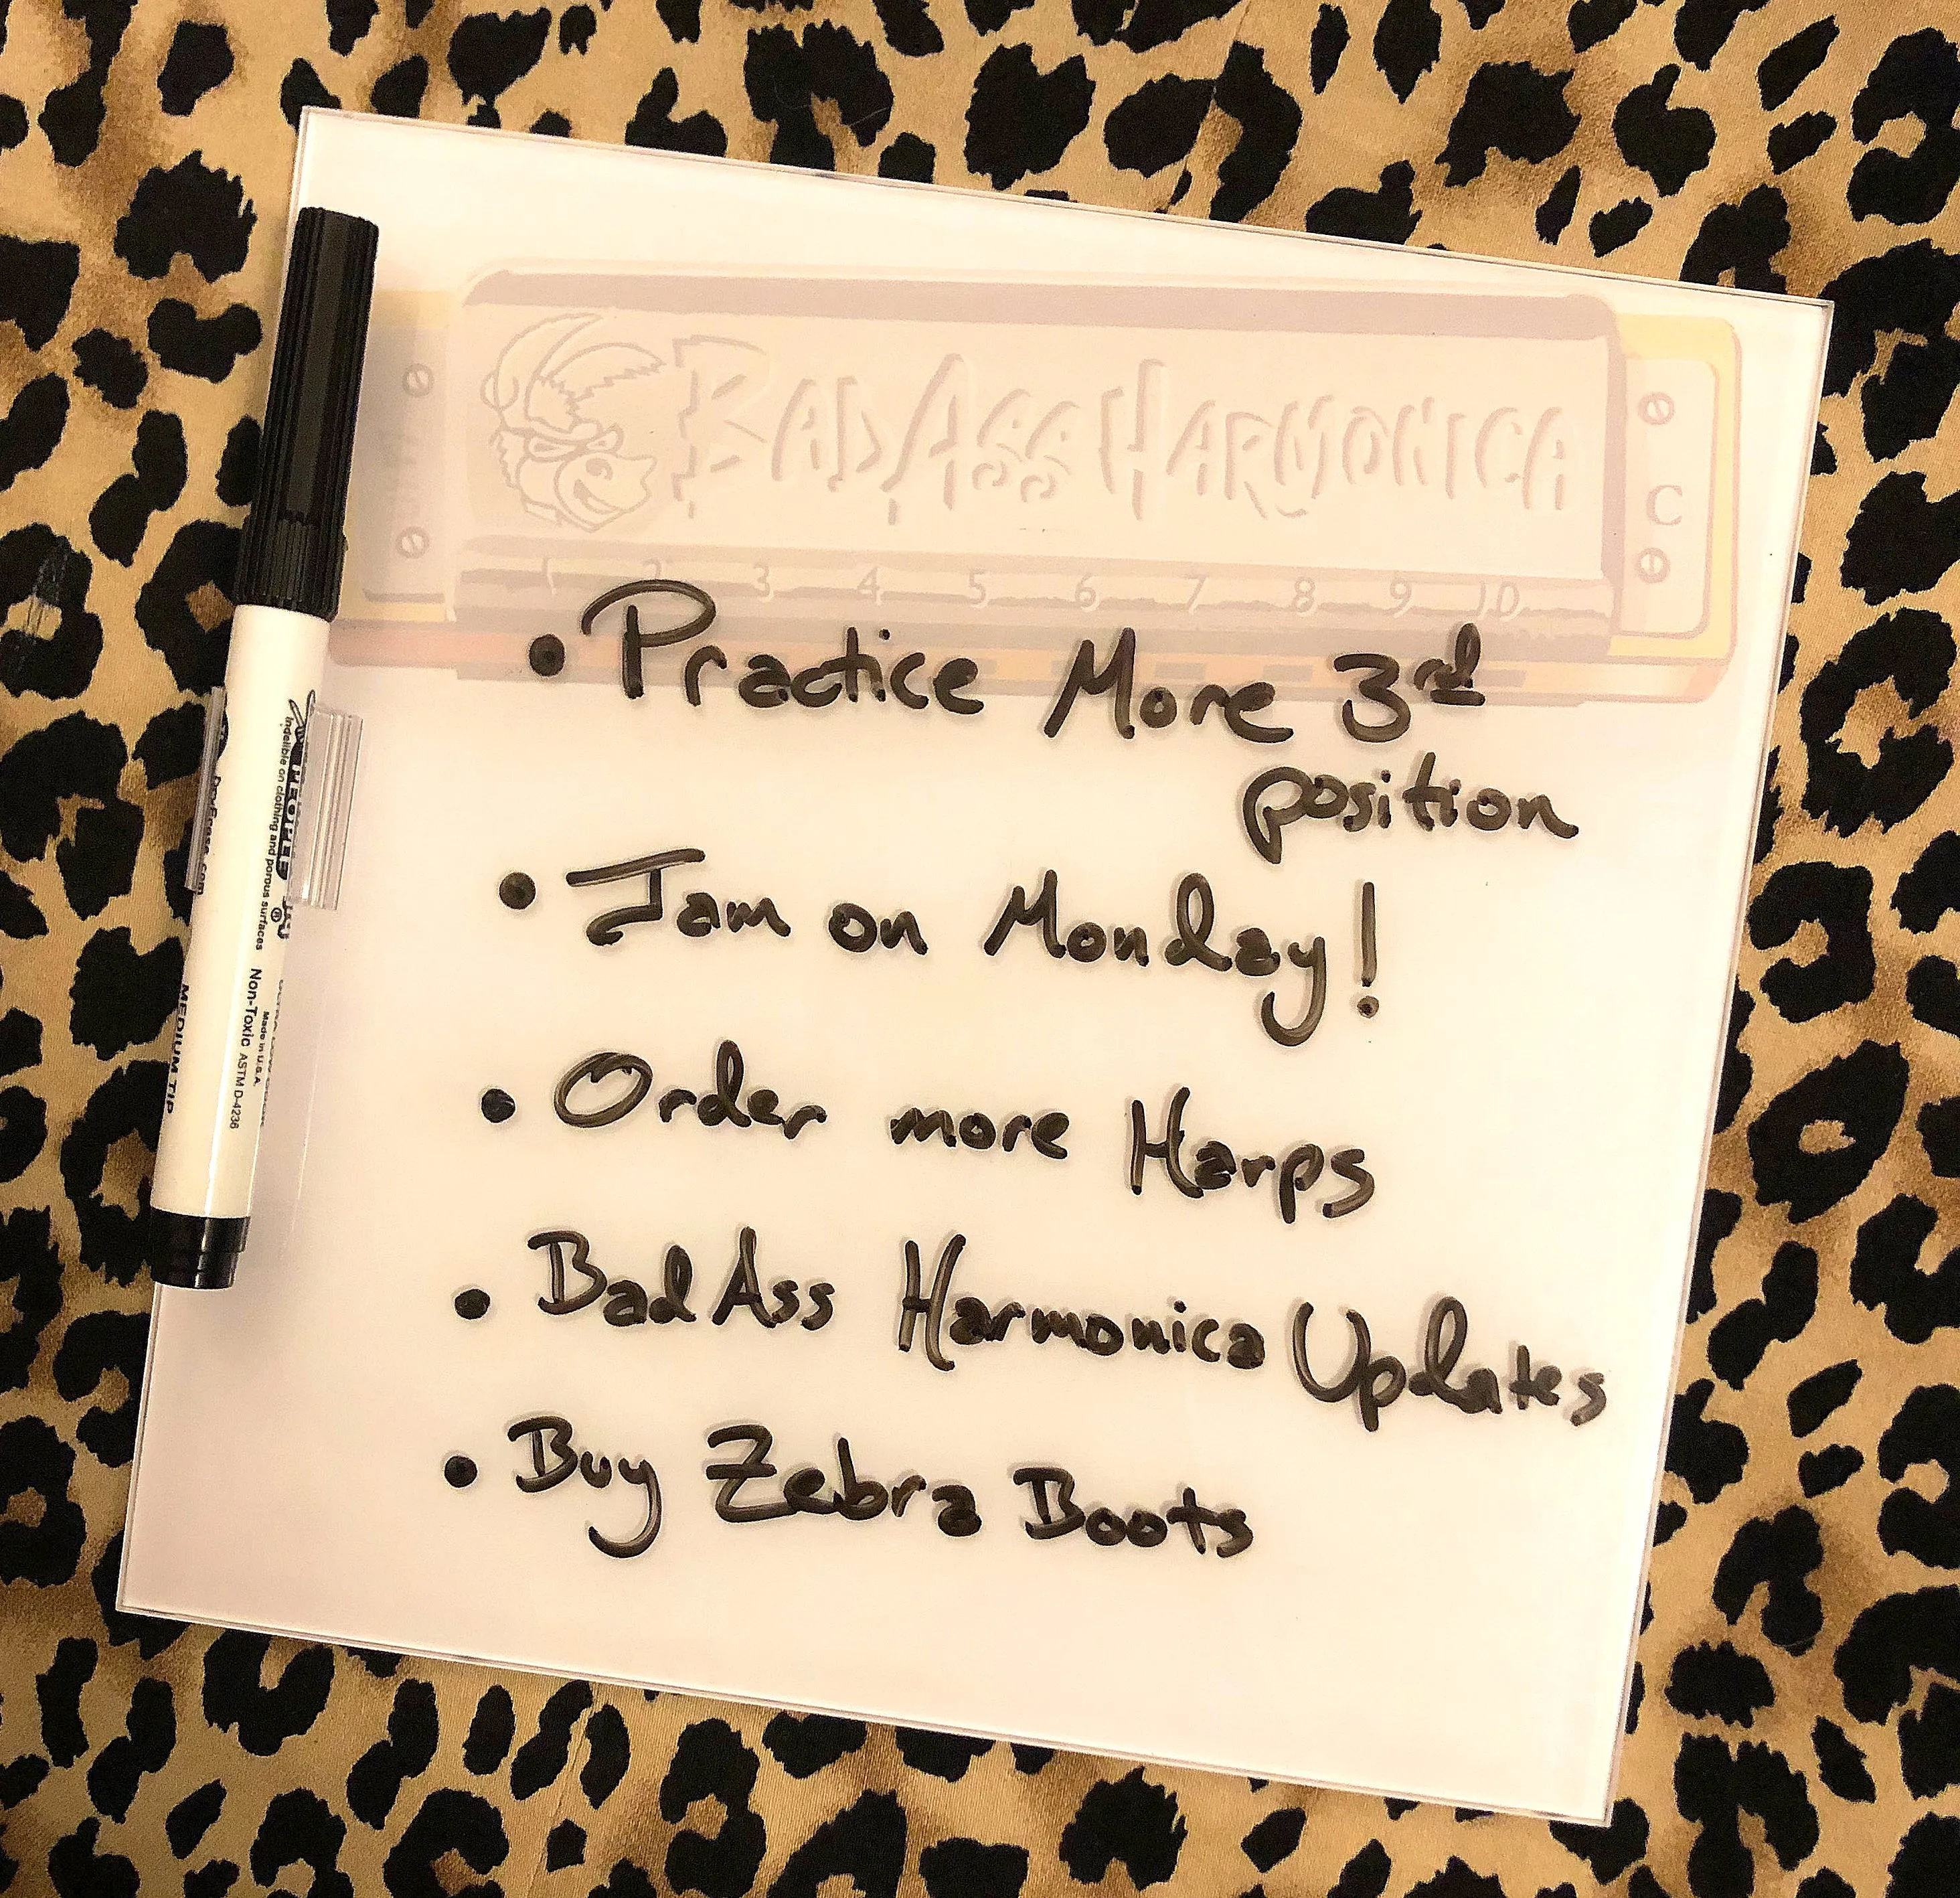 BadAss Harmonica
C
1 2 3 4 5 6 7 8 9 10
• Practice More 3rd
position
• Jam on Monday!
• Order more Harps
• BadAss Harmonica Updates
• Buy Zebra Boots
Indelible on clothing and porous surfaces
Non-Toxic ASTM D-4236
Made in U.S.A.
MEDIUM TIP